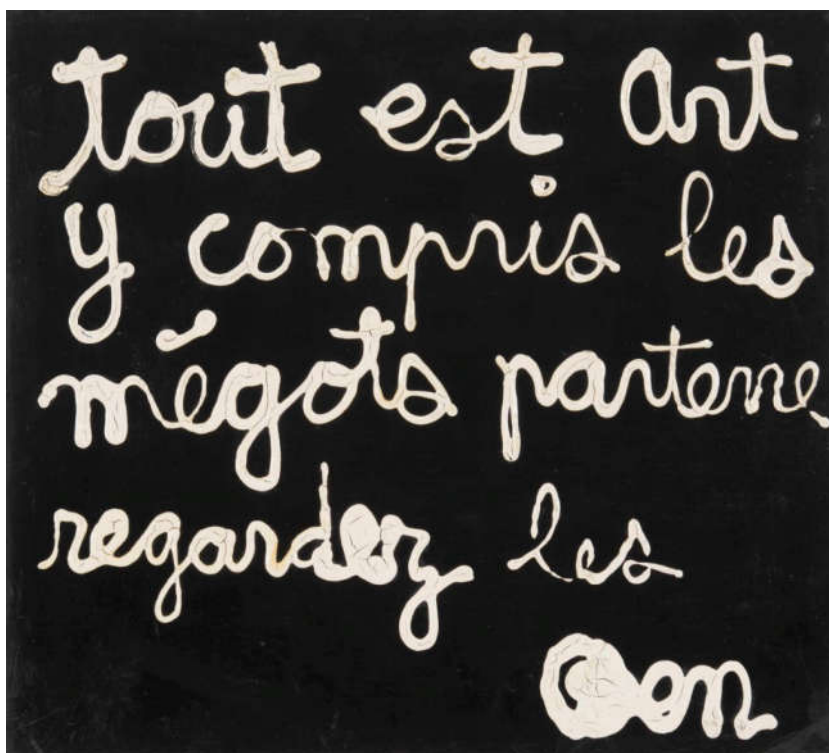 tout est Art
y compris les
mégots parterre
regardez les
Ben